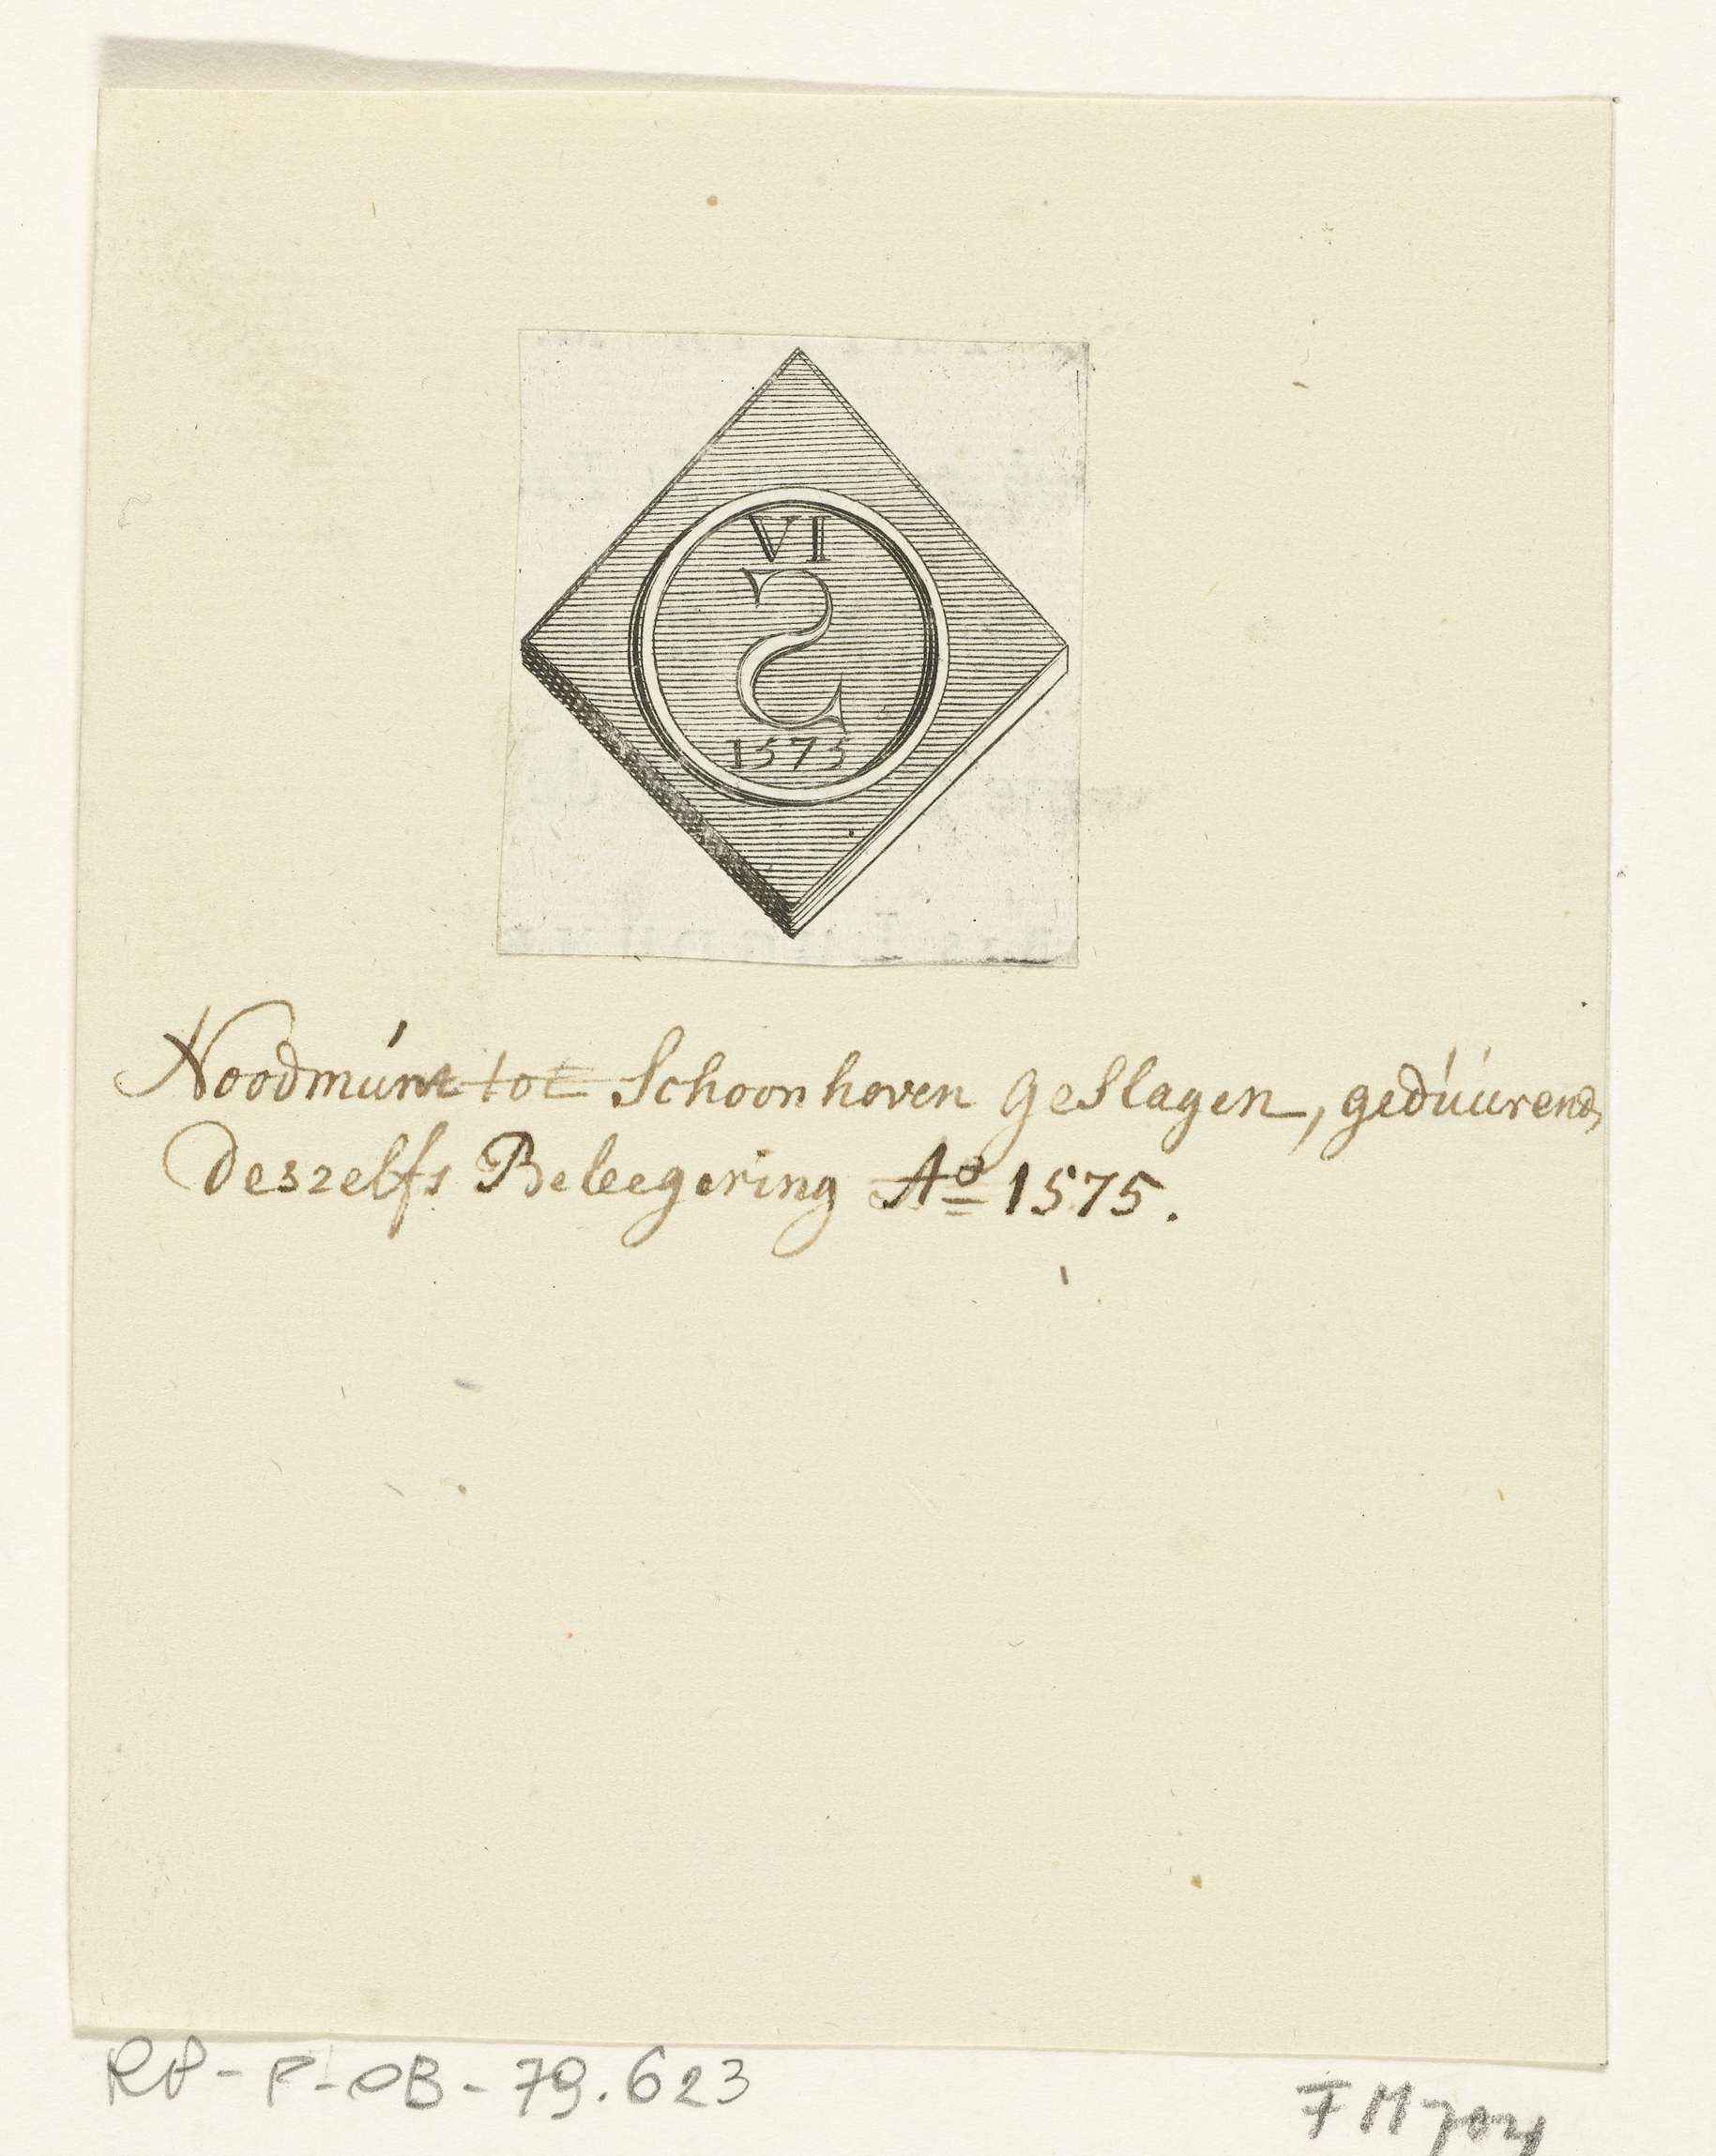 VI
S
1575
Noodmúnt tot Schoonhoven Geslagen, gedúúrend
deszelfs Beleegering Aº 1575.
RP-P-OB-79.623
FM 704